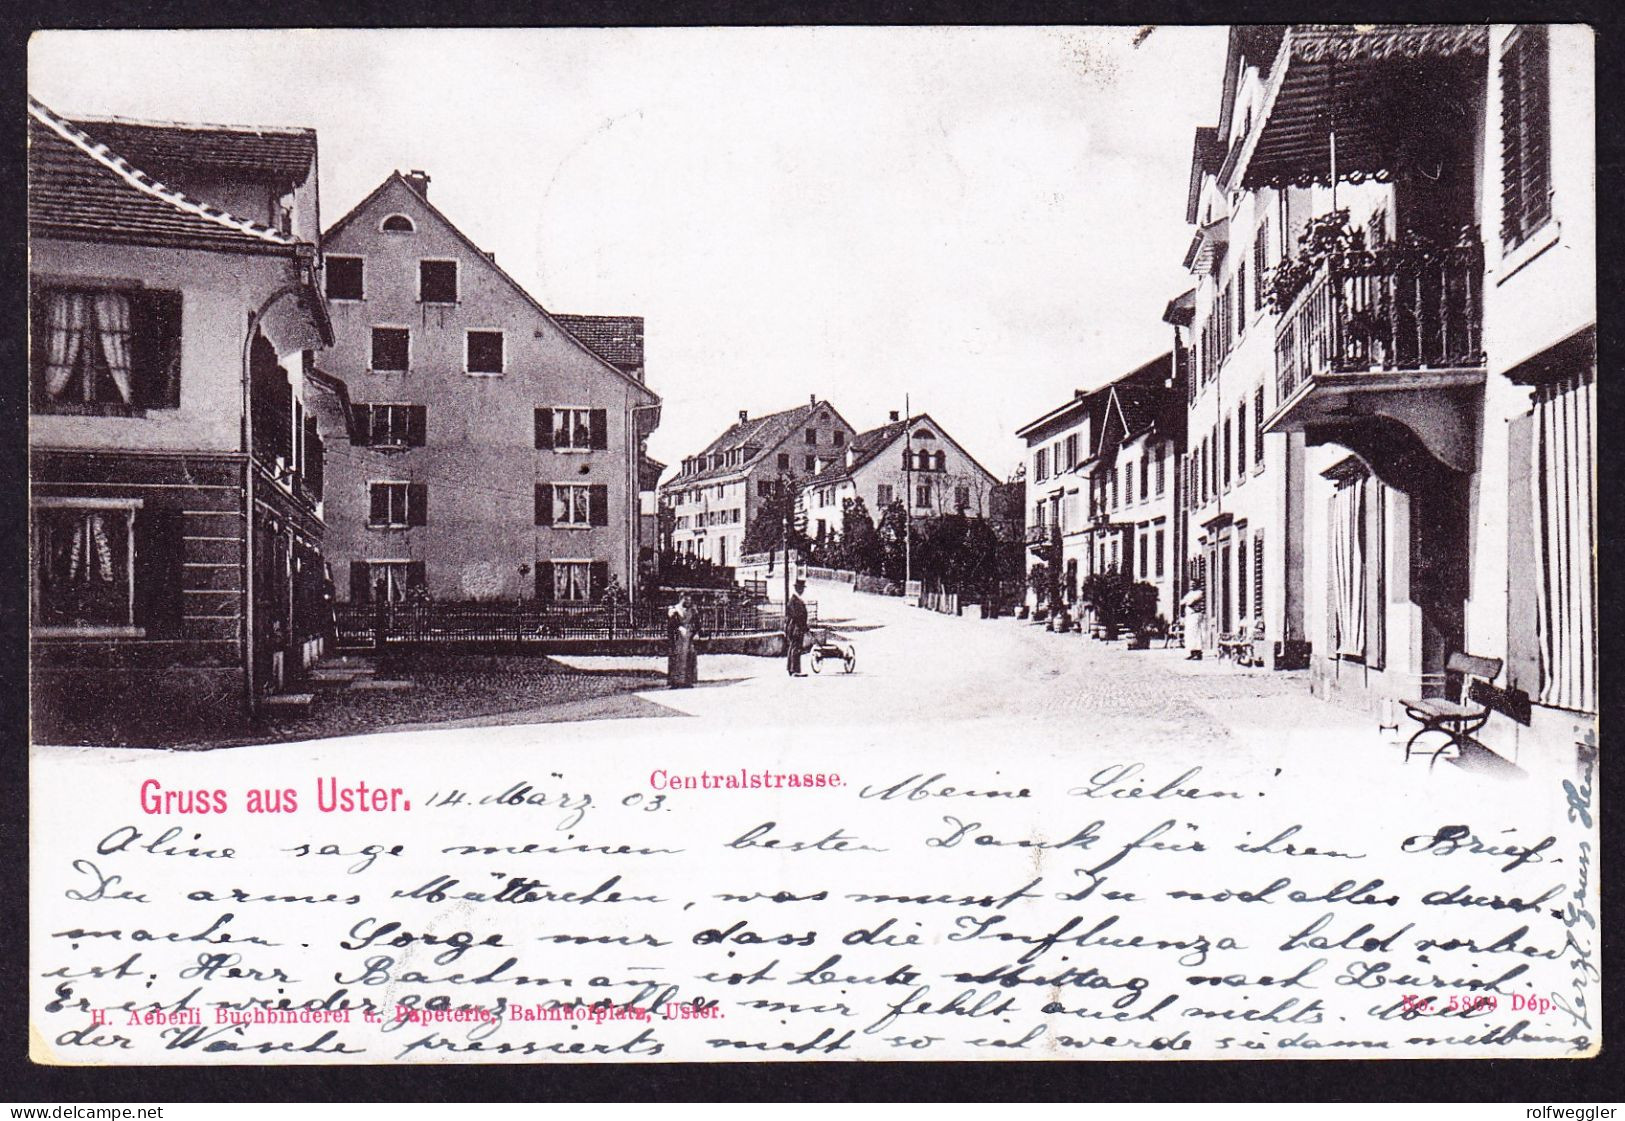 Gruss aus Uster. 14. März. 03. Centralstrasse. Meine Lieben!
Aline sage meinen besten Dank für ihren Brief.
Du armes Mütterchen, was musst Du noch alles durch-
machen. Sorge nur dass die Influenza bald vorbei
ist. Herr Bachmann ist heute Mittag nach Zürich.
Er ist wieder ganz wohl & mir fehlt auch nichts. Mit
H. Aeberli Buchbinderei u. Papeterie, Bahnhofplatz, Uster.
No. 5809 Dép.
der Wäsche pressierts nicht so ich werde sie dann mitbringen
Herzl. Gruss Henri
rolfweggler